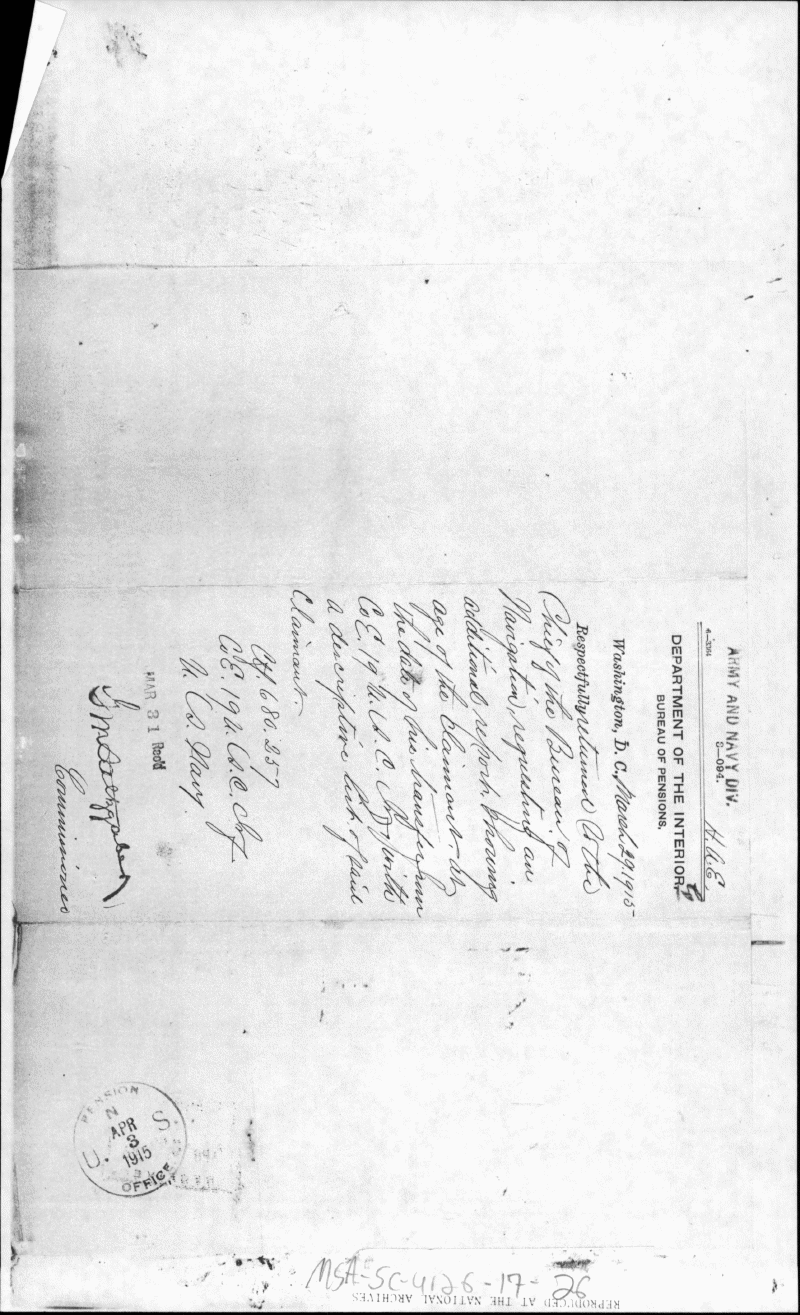 ARMY AND NAVY DIV.
S—094.
H.A.E.
4—3364
DEPARTMENT OF THE INTERIOR,
BUREAU OF PENSIONS,
Washington, D. C., March 29, 1915
Respectfully returned to the
Chief of the Bureau of
Navigation, requesting an
additional report, showing
age of the claimant at
the date of his transfer from
Co E. 19 U.S.C. Inf with
a descriptive list of said
claimant.
Ctf. 680.257
Co E. 19 U.S.C. Inf
U.S. Navy.
MAR 31 Recd
Commissioner
U. S. PENSION OFFICE
APR
3
1915
MSA-SC-4126-17-26
REPRODUCED AT THE NATIONAL ARCHIVES